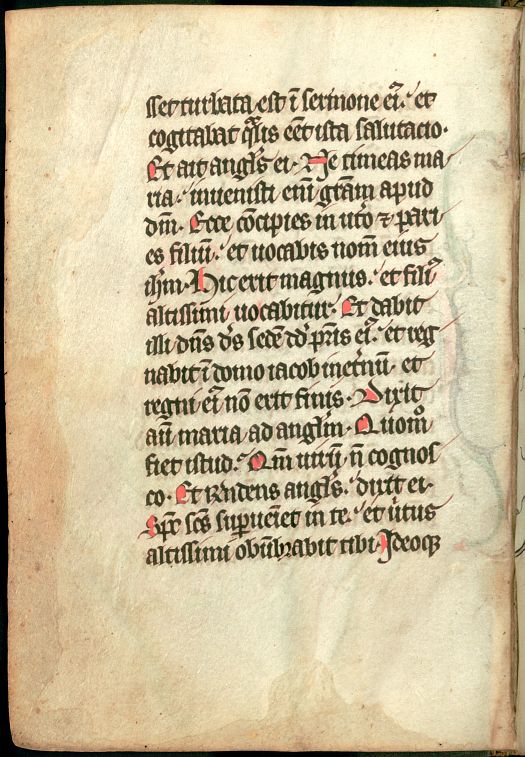 sset turbata est ī sermone eiꝰ. et
cogitabat qͣlis eēt ista salutacio.
Et ait angl̄s ei. Ne timeas ma
ria. inuenisti enī gr̄am apud
dn̄m. Ecce cōcipies in utͦo ⁊ pari
es filiū. et uocabis nom̄ eius
ihm̄. Hic erit magnus. et filiꝰ
altissimi uocabitur. Et dabit
illi dn̄s ds̄ sedē dd̄ pr̄is eiꝰ. et reg
nabit ī domo iacob inet̄nū. et
regni eiꝰ nō erit finis. Dixit
aū maria ad angl̄m. Quomͦ
fiet istud. Qm̄ uirū n̄ cognos
co. Et rn̄dens angl̄s. dixit ei.
Sp̄c sc̄s supueīet in te. et uirtus
altissimi obūbrabit tibi. Ideoqꝫ